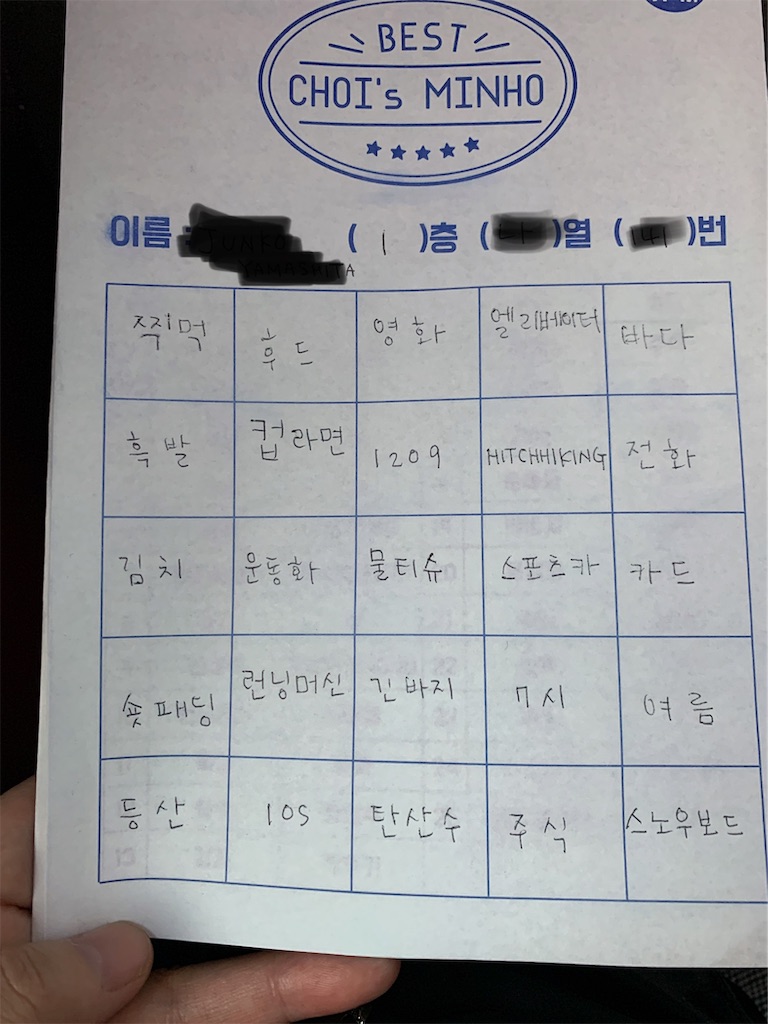 BEST
CHOI's MINHO
이름 : ( 1 )층 ( )열 ( )번
찍먹 후드 영화 엘리베이터 바다
흑발 컵라면 1209 HITCHHIKING 전화
김치 운동화 물티슈 스포츠카 카드
숏패딩 런닝머신 긴바지 7시 여름
등산 IOS 탄산수 주식 스노우보드